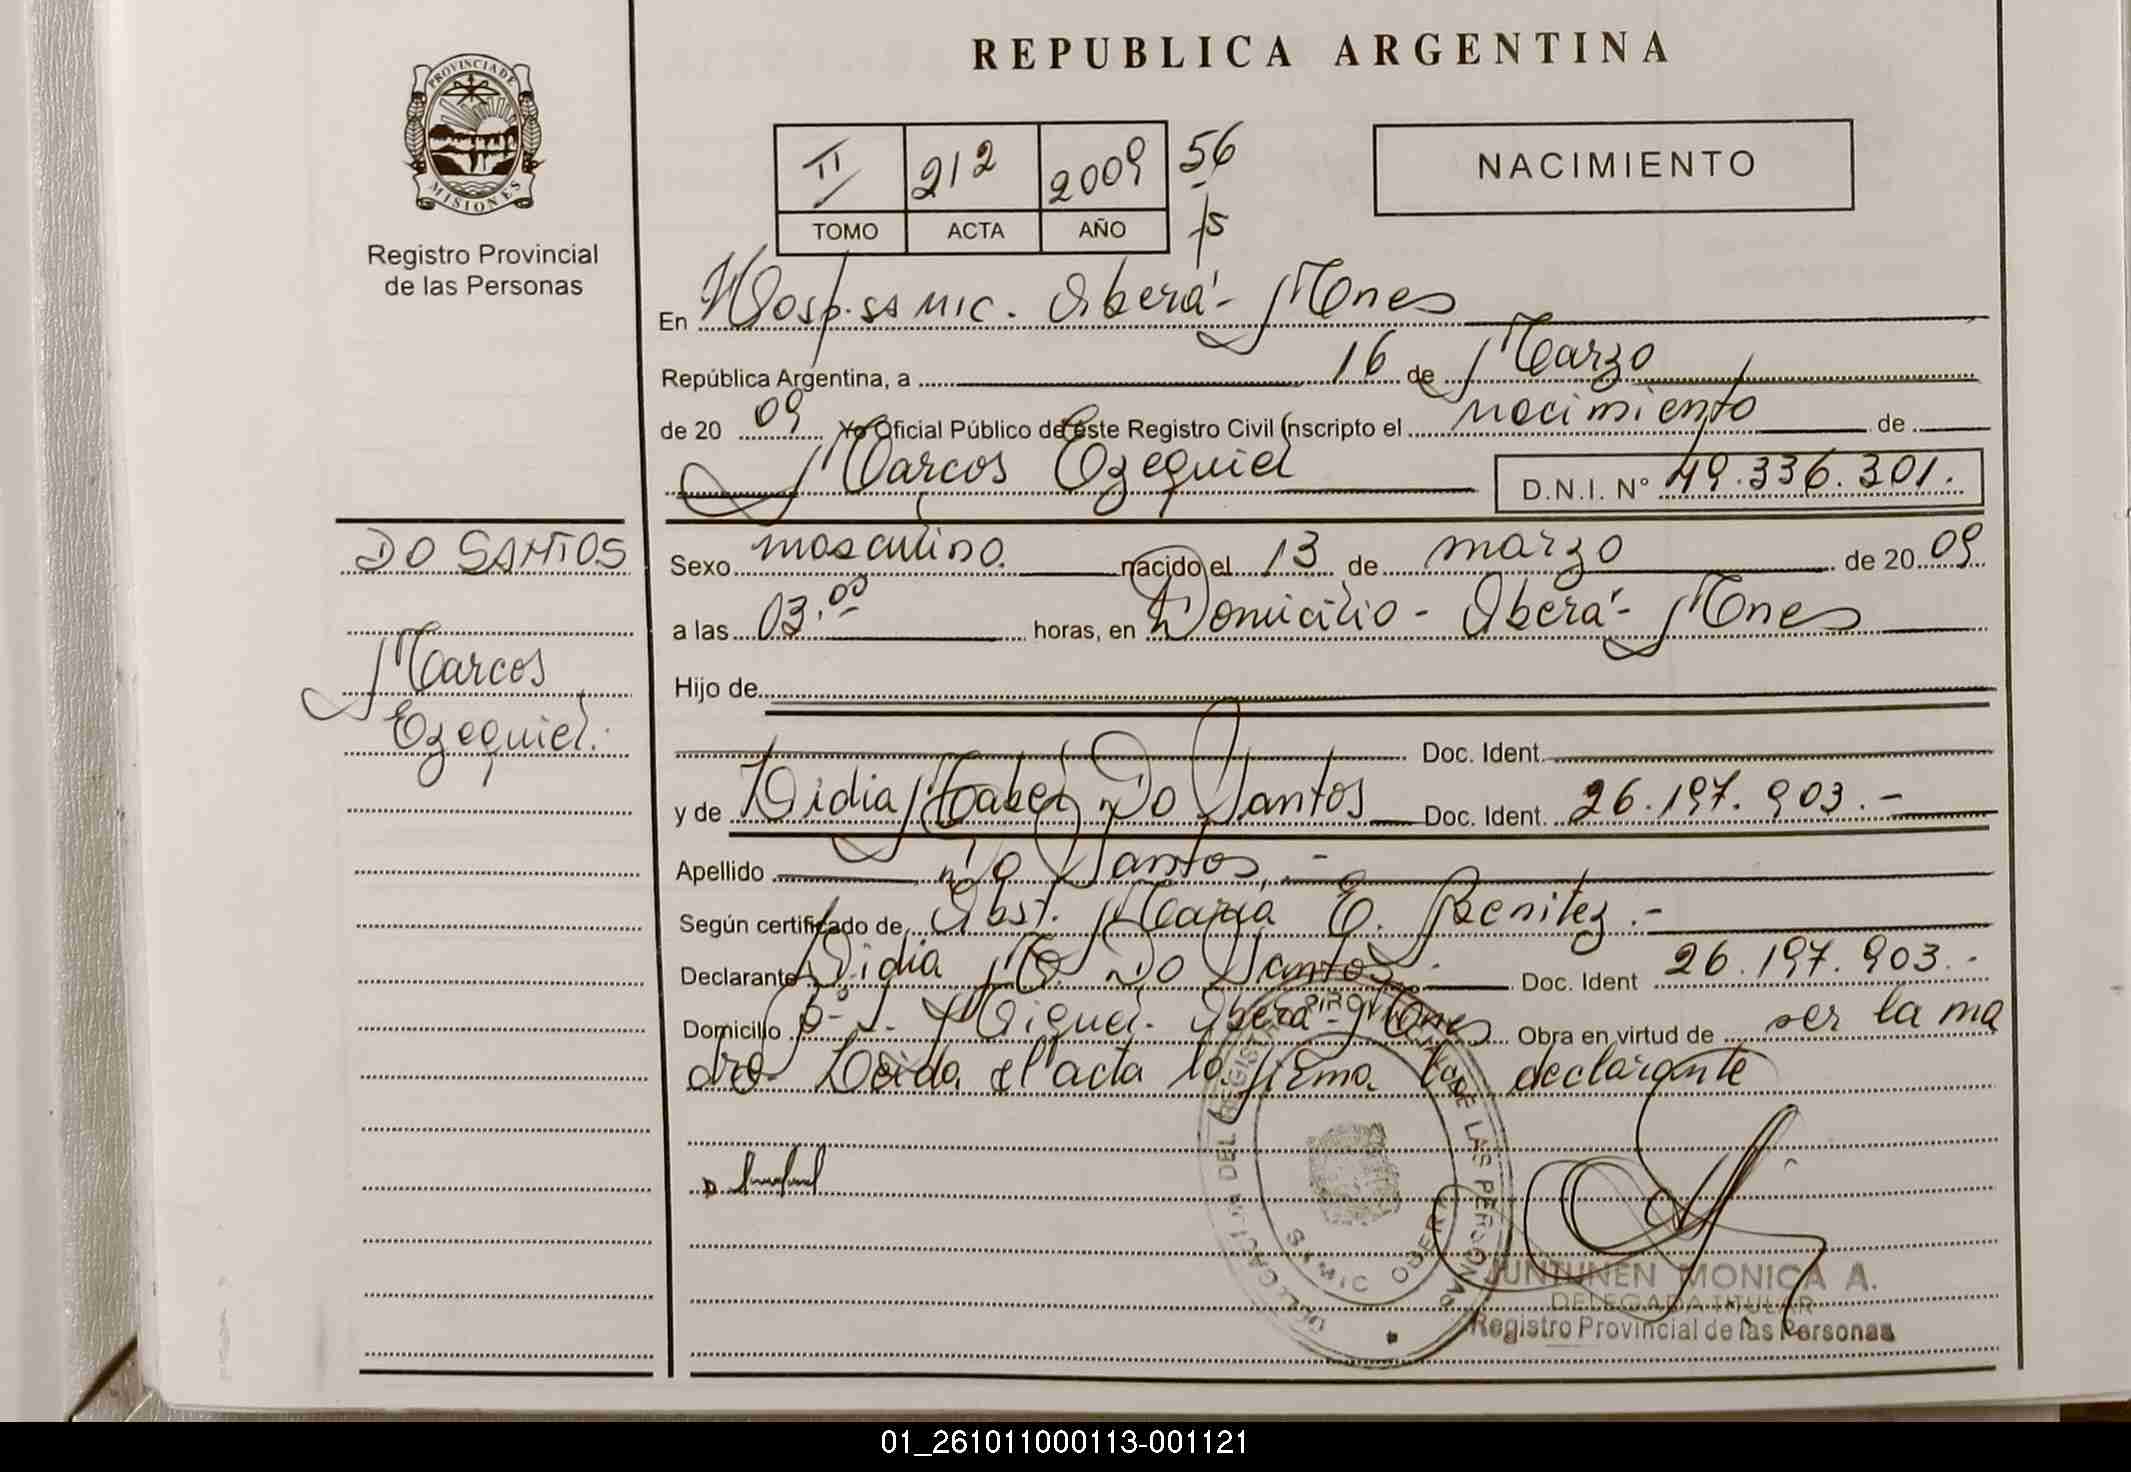 REPUBLICA ARGENTINA
PROVINCIA DE MISIONES
Registro Provincial
de las Personas
II 212 2009 56
TOMO ACTA AÑO 15
NACIMIENTO
En Hosp. SAMIC. Oberá - Mnes
República Argentina, a 16 de Marzo
de 20 09 Yo Oficial Público de este Registro Civil inscripto el nacimiento de
Marcos Ezequiel D.N.I. Nº 49.336.301.
DO SANTOS
Marcos
Ezequiel.
Sexo masculino nacido el 13 de marzo de 20 09
a las 03.00 horas, en Domicilio - Oberá - Mnes
Hijo de
Doc. Ident.
y de Lidia Mabel Do Santos Doc. Ident. 26.197.903.-
Apellido Do Santos.-
Según certificado de Obst. María E. Benitez.-
Declarante Lidia M. Do Santos.- Doc. Ident 26.197.903.-
Domicilio Miguel. Oberá - Mnes Obra en virtud de ser la ma
dre Leida el acta la firma la declarante
DELEGACION DEL REGISTRO PROVINCIAL DE LAS PERSONAS
SAMIC OBERA
JUNTUNEN MONICA A.
DELEGADA TITULAR
Registro Provincial de las Personas
01_261011000113-001121